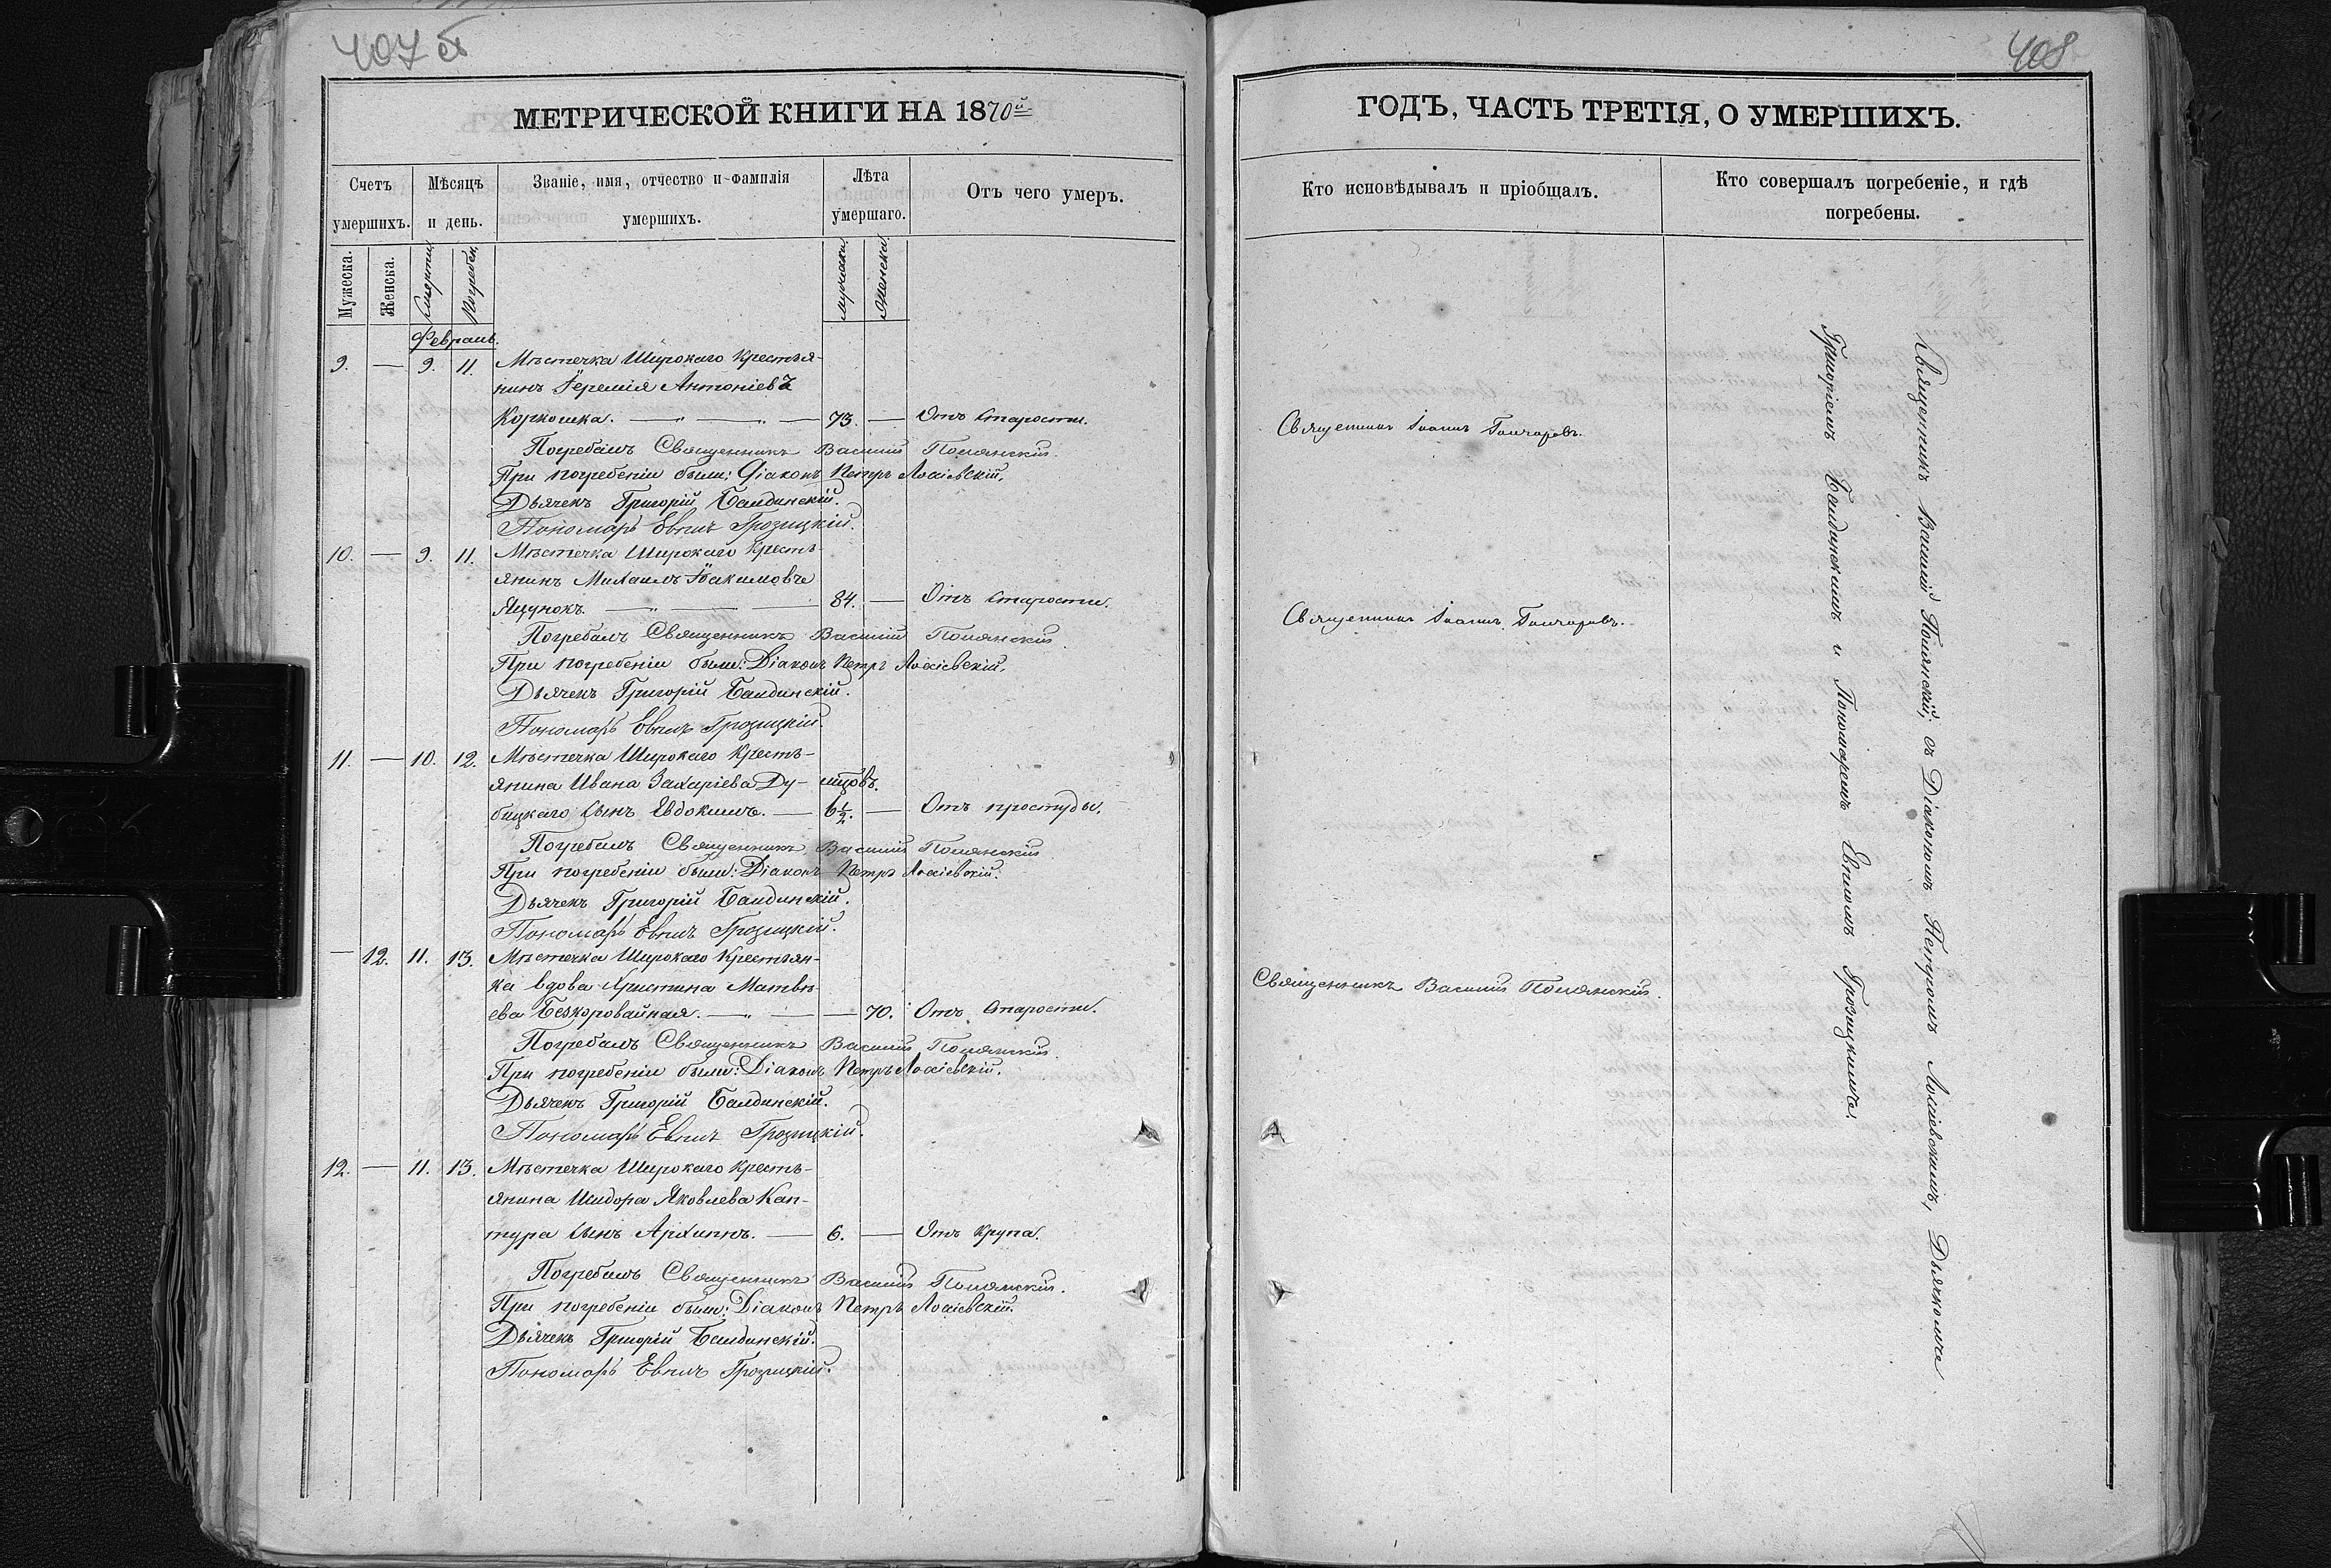 407 об
408
МЕТРИЧЕСКОЙ КНИГИ НА 1870й
ГОДЪ, ЧАСТЬ ТРЕТІЯ, О УМЕРШИХЪ.
Счетъ умершихъ.
Мѣсяцъ и день.
Званіе, имя, отчество и фамилія умершихъ.
Лѣта умершаго.
Отъ чего умеръ.
Кто исповѣдывалъ и пріобщалъ.
Кто совершалъ погребеніе, и гдѣ погребены.
Мужеска.
Женска.
Смерти
Погребен.
мужеска
женска
Февраль.
9. — 9. 11. Мѣстечка Широкаго Крестья-
нинъ Іеремія Антоніевъ
Коркошка. — 73. — Отъ старости.
Священникъ Іоаннъ Гончаровъ.
Погребалъ Священникъ Василій Полянскій.
При погребеніи были: Діаконъ Петръ Лосіевскій.
Дьячекъ Григорій Балдинскій.
Пономарь Евѳимъ Грозицкій.
10. — 9. 11. Мѣстечка Широкаго Кресть-
янинъ Михаилъ Іоакимовъ
Яцунокъ. — 84. — Отъ старости.
Священникъ Іоаннъ Гончаровъ.
Погребалъ Священникъ Василій Полянскій
При погребеніи были: Діаконъ Петръ Лосіевскій.
Дьячекъ Григорій Балдинскій.
Пономарь Евѳимъ Грозицкій.
11. — 10. 12. Мѣстечка Широкаго Кресть-
янина Ивана Захаріева Ду- мцовъ.
бицкаго сынъ Евдокимъ. — 6½. — Отъ простуды.
Погребалъ Священникъ Василій Полянскій
При погребеніи были: Діаконъ Петръ Лосіевскій.
Дьячекъ Григорій Балдинскій.
Пономарь Евѳимъ Грозицкій.
— 12. 11. 13. Мѣстечка Широкаго Крестьян-
ка вдова Христина Матвѣ-
ева Безкоровайная. — — 70. Отъ старости.
Священникъ Василій Полянскій.
Погребалъ Священникъ Василій Полянскій.
При погребеніи были: Діаконъ Петръ Лосіевскій.
Дьячекъ Григорій Балдинскій.
Пономарь Евѳимъ Грозицкій.
12. — 11. 13. Мѣстечка Широкаго Кресть-
янина Исидора Яковлева Кап-
тура сынъ Архиппъ. — 6. — Отъ крупа.
Погребалъ Священникъ Василій Полянскій.
При погребеніи были: Діаконъ Петръ Лосіевскій.
Дьячекъ Григорій Балдинскій.
Пономарь Евѳимъ Грозицкій.
Священникъ Василій Полянскій, съ Діакономъ Петромъ Лосіевскимъ, Дьячкомъ
Григоріемъ Балдинскимъ и Пономаремъ Евѳимомъ Грозицкимъ.